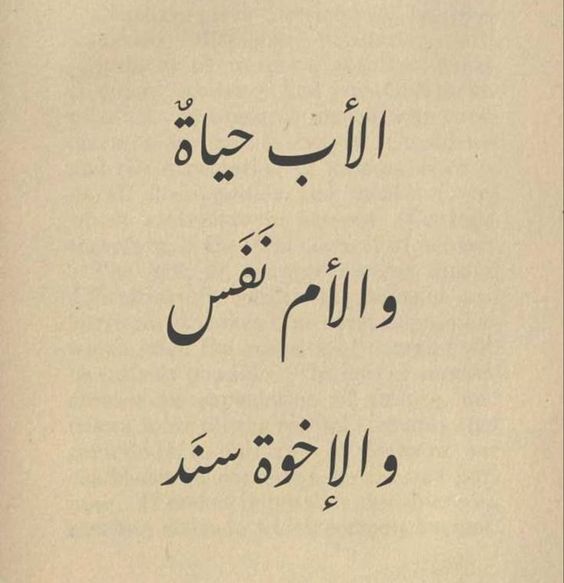 الأب حياةٌ
والأم نَفَس
والإخوة سنَد